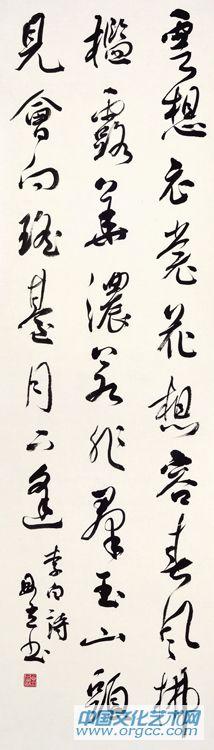 雲想衣裳花想容春風拂
檻露華濃若非羣玉山頭
見會向瑤臺月下逢
李白詩
书
中国文化艺术网
www.orgcc.com